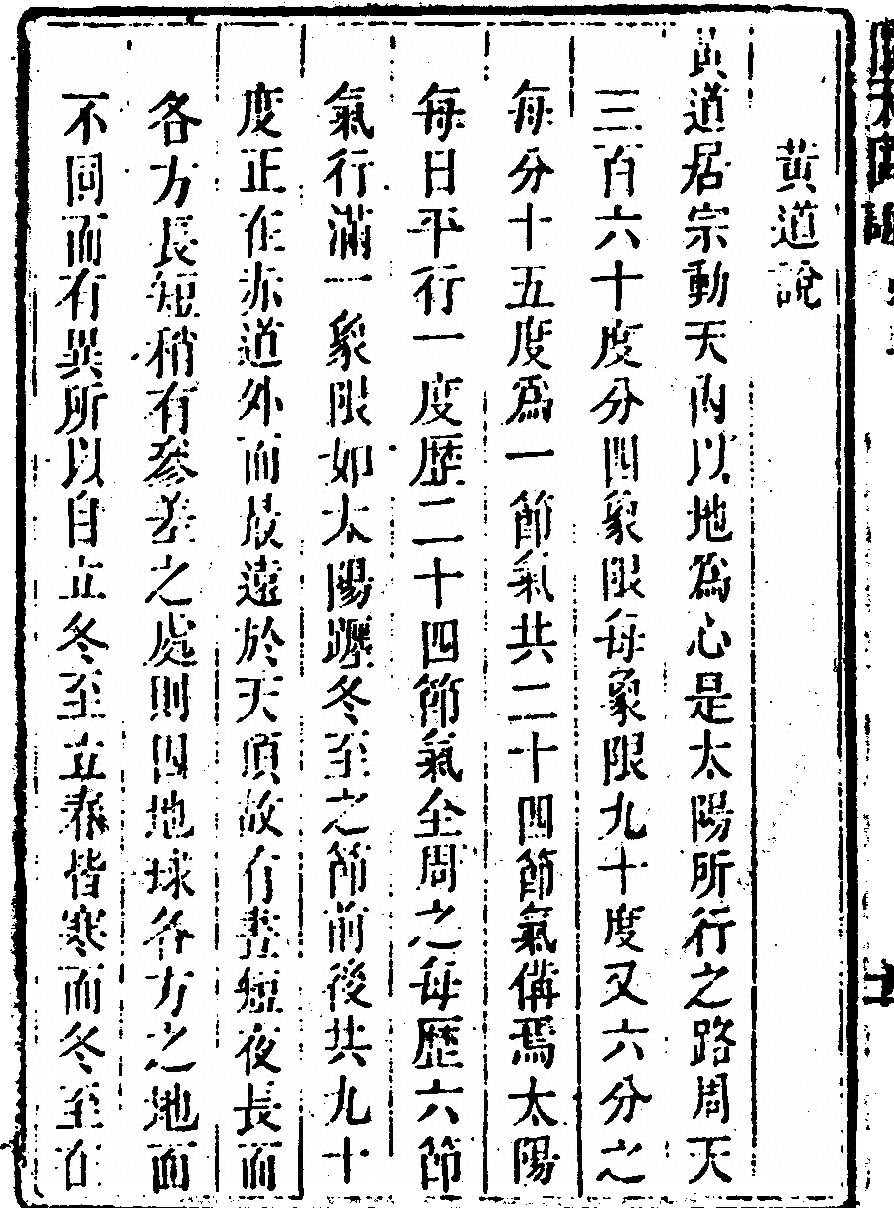 黃道說
黃道居宗動天內以地爲心是太陽所行之路周天
三百六十度分四象限每象限九十度又六分之
每分十五度爲一節氣共二十四節氣備焉太陽
每日平行一度歷二十四節氣全周之每歷六節
氣行滿一象限如太陽躔冬至之節前後共九十
度正在赤道外而最遠於天頂故有晝短夜長而
各方長短稍有參差之處則因地球各方之地面
不同而有異所以自立冬至立春皆寒而冬至在